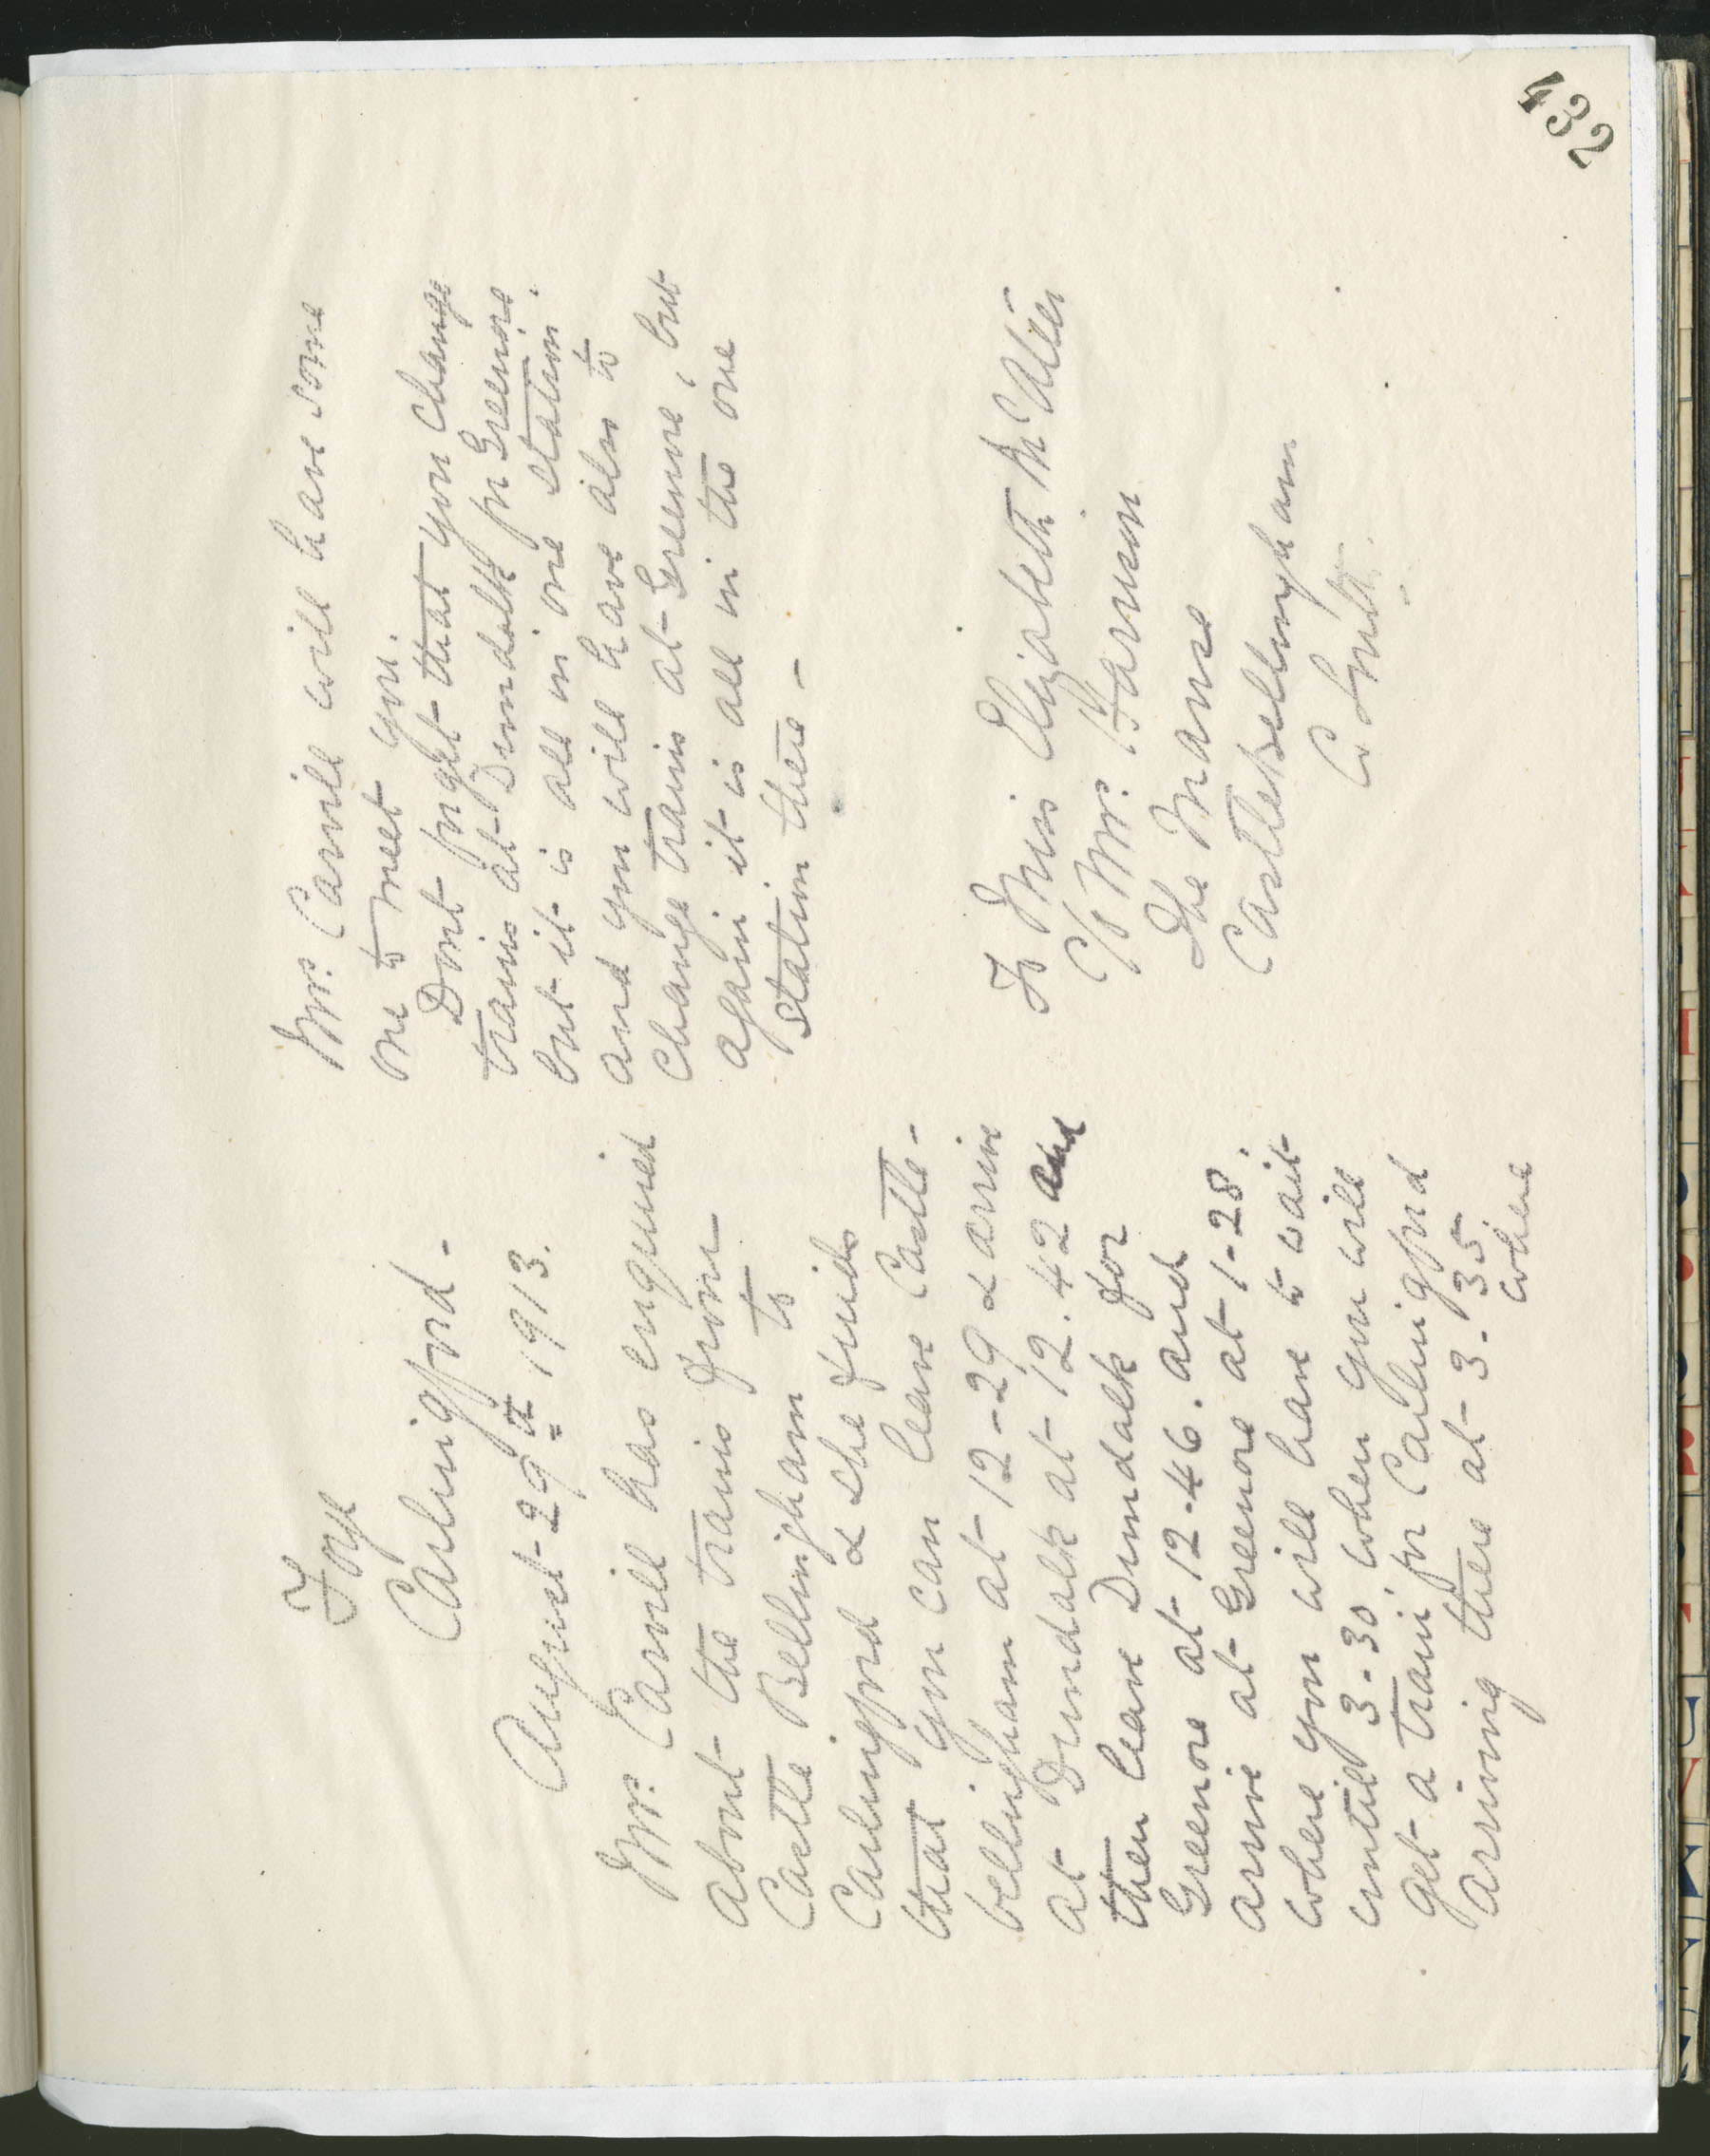 432
Foyê
Carlingford -
August 29th 1913.
Mrs. Carvill has enquired
about the trains from
Castle Bellingham to
Carlingford & she finds
that you can leave Castle-
bellingham at 12-29 & arrive
at Dundalk at 12.42 and
then leave Dundalk for
Greenore at 12-46. and
arrive at Greenore at 1-28.
where you will have to wait
until 3-30, when you will
get a train for Carlingford
arriving there at 3-35.
where
Mrs. Carvill will have some
one to meet you.
Dont forget that you change
trains at Dundalk for Greenore.
but it is all in one station.
and you will have also to
change trains at Greenore, but
again it is all in the one
station there -
To Miss Elizabeth McAteer
C/o Mrs. Harrison
The Manse
Castlebellingham
Co Louth.